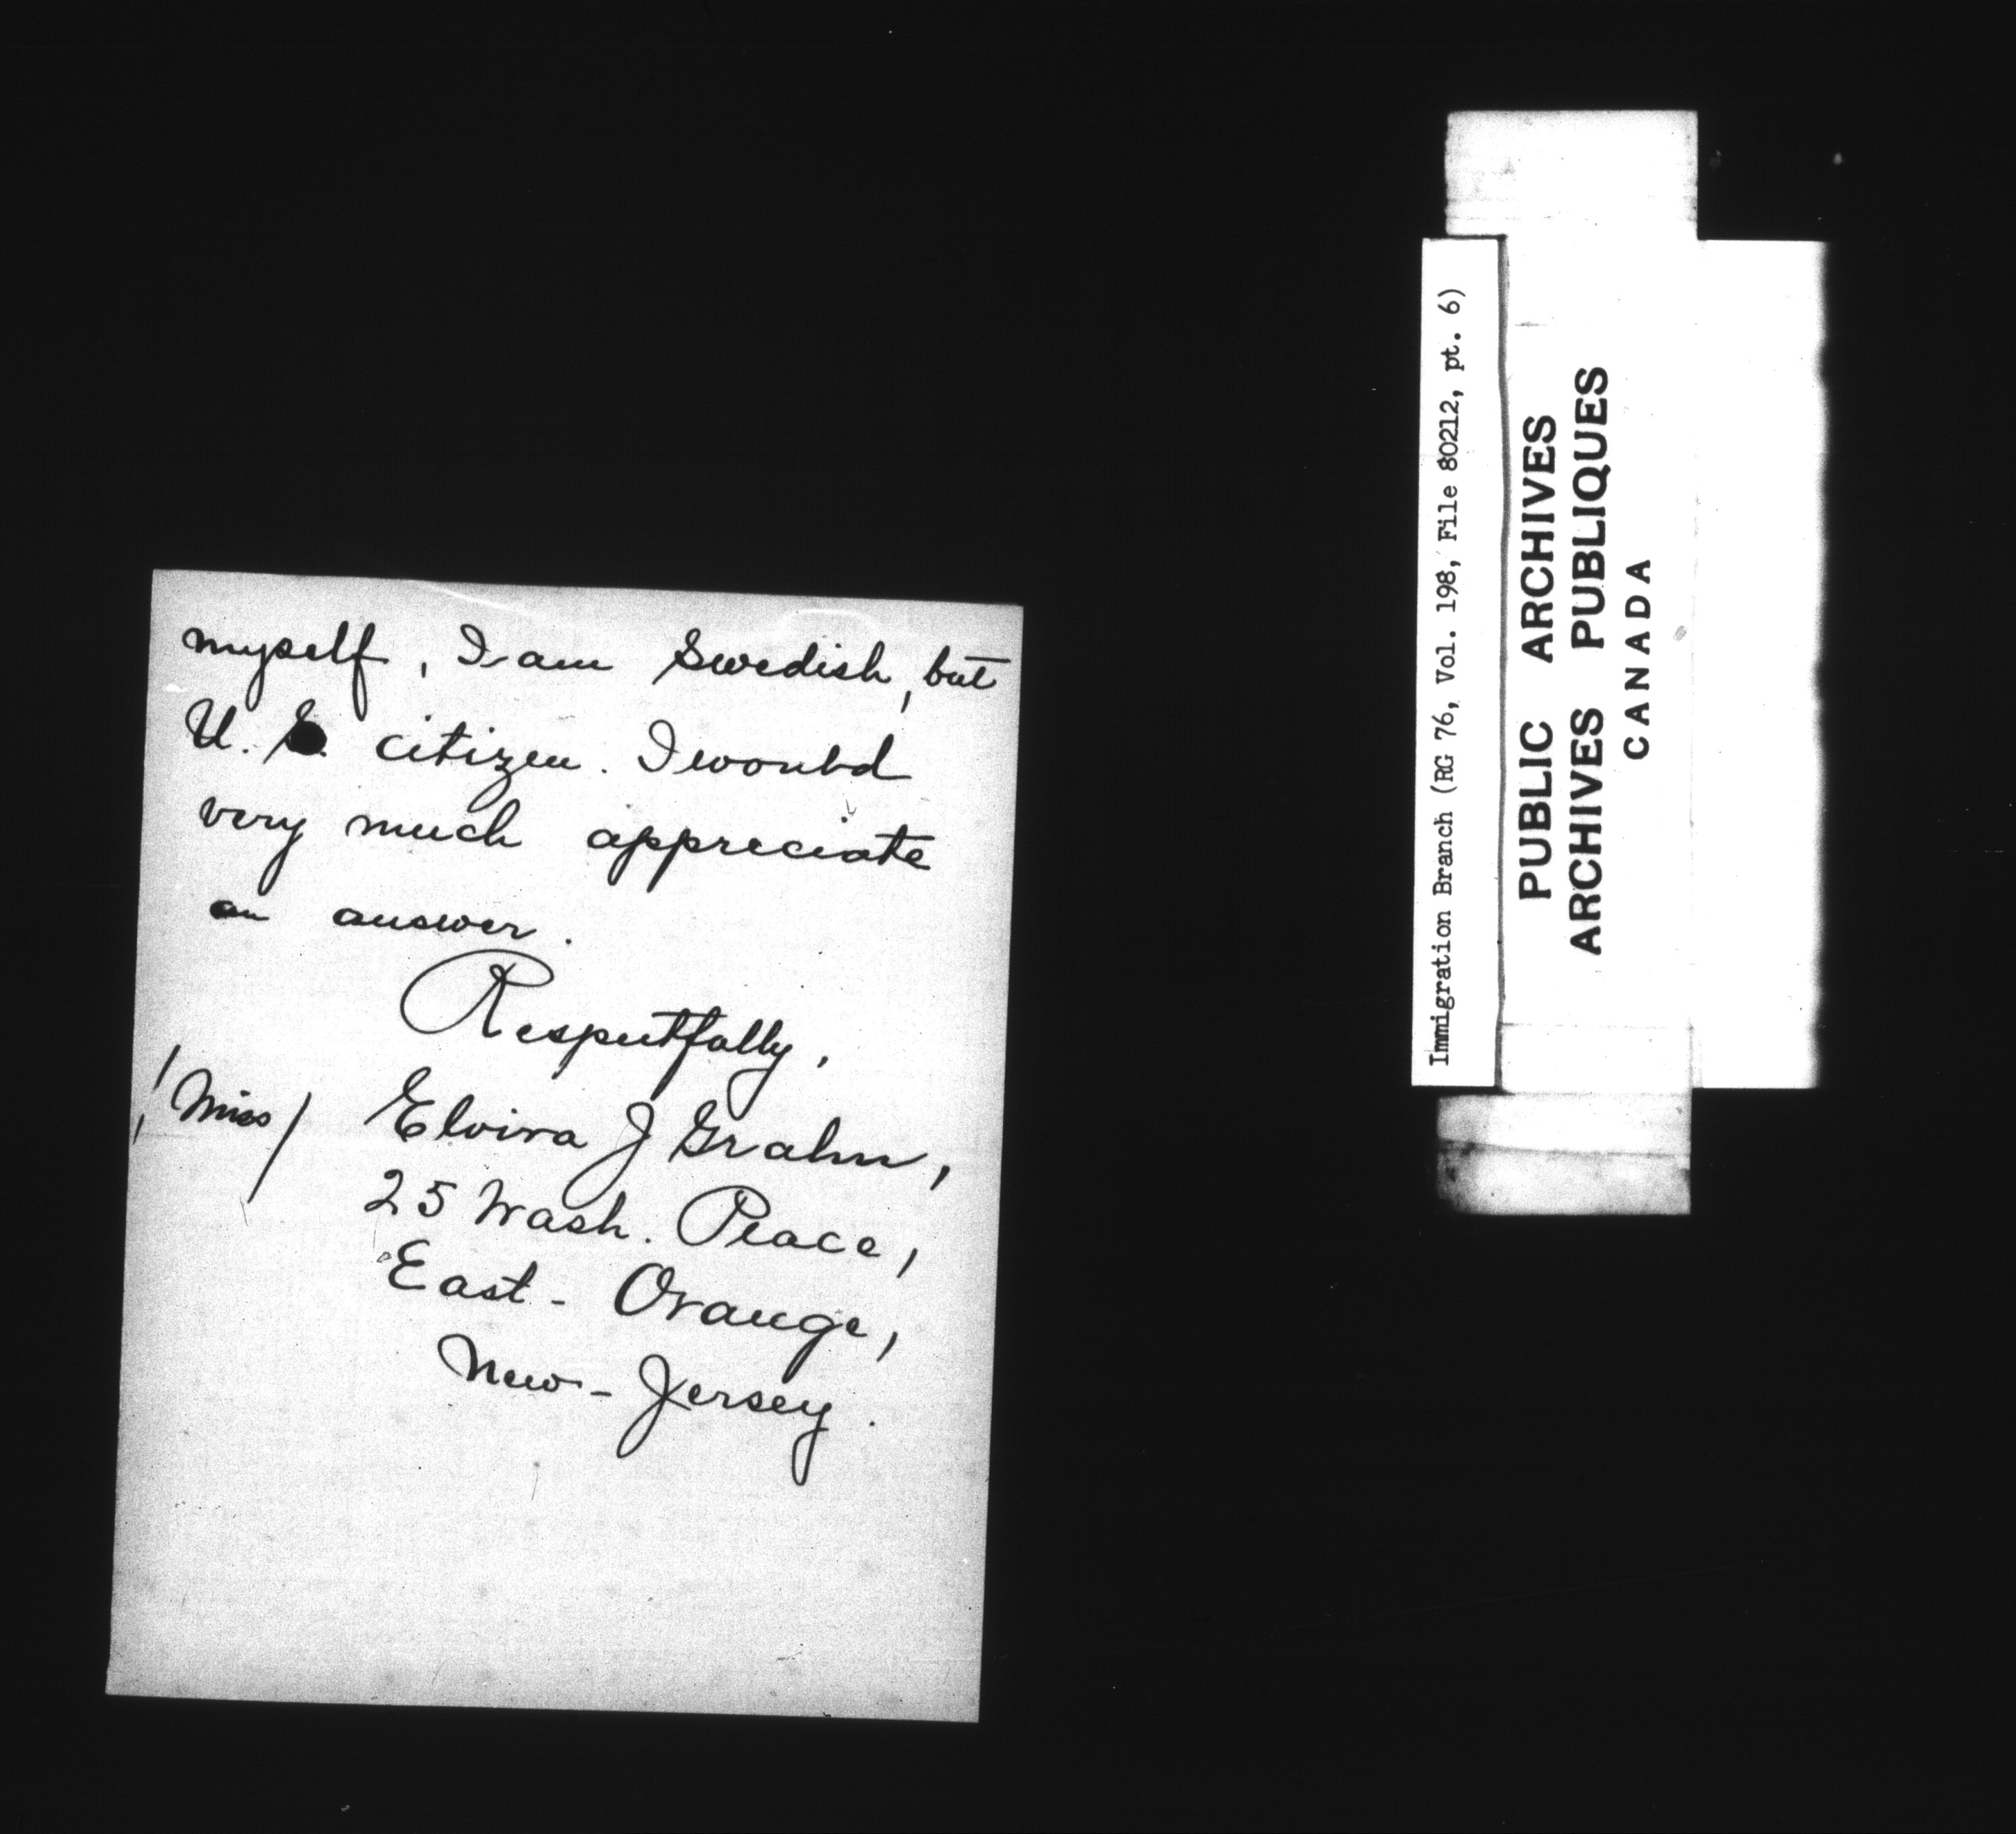 myself, I am Swedish, but
U. S. citizen. I would
very much appreciate
an answer.
Respectfully,
/Miss/ Elvira J Grahn,
25 Wash. Place,
East - Orange,
New - Jersey.
Immigration Branch (RG 76, Vol. 198, File 80212, pt. 6)
PUBLIC ARCHIVES
ARCHIVES PUBLIQUES
CANADA